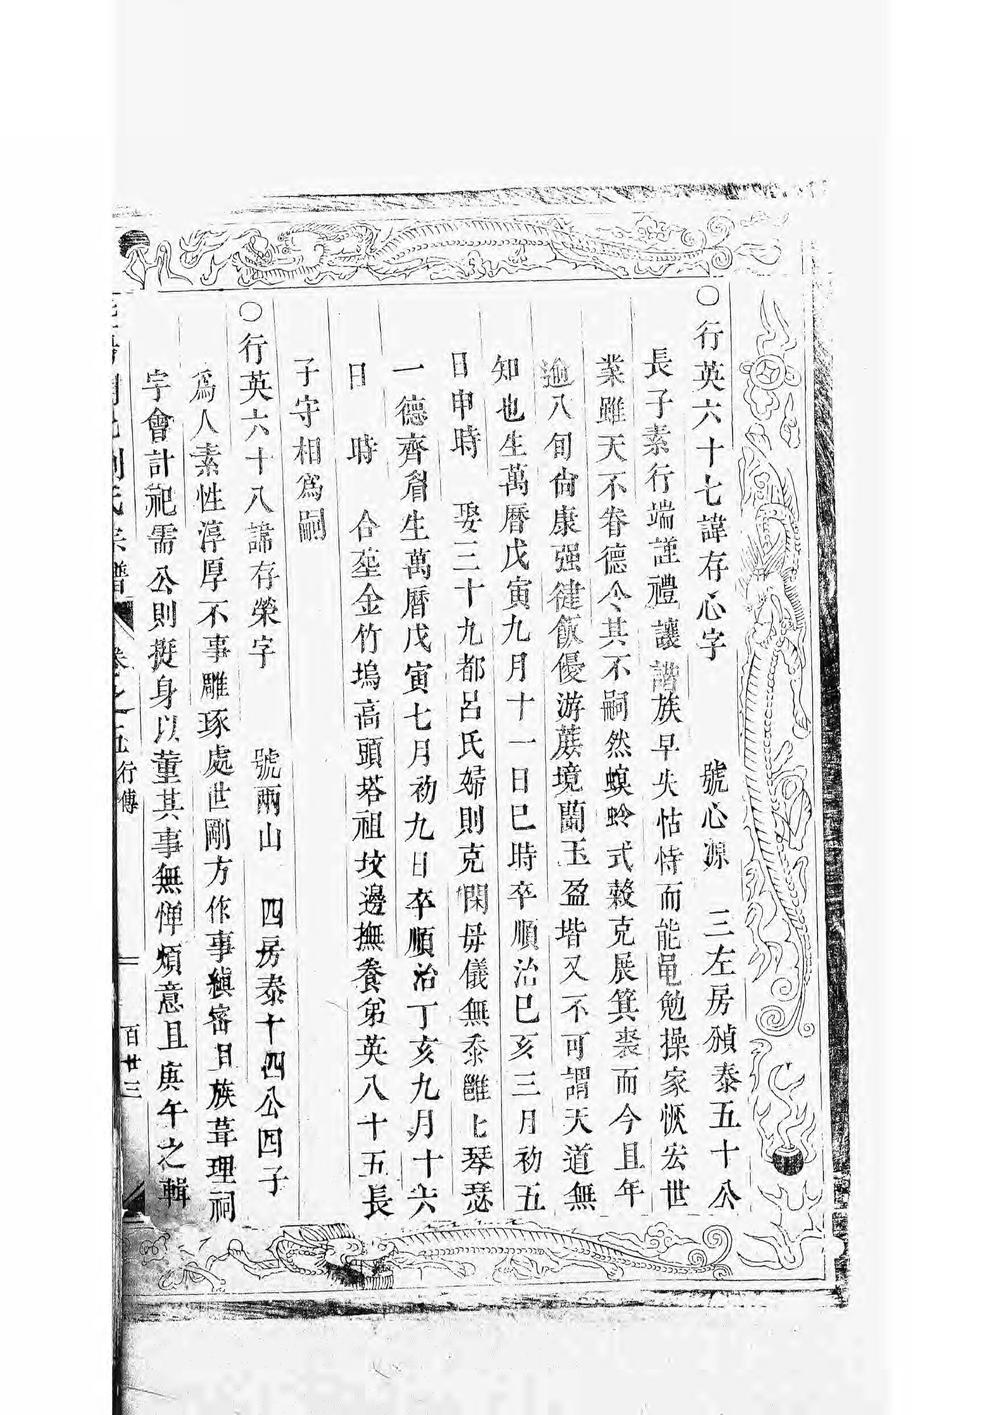 ○行英六十七諱存心字　號心源　三左房頳泰五十公
長子素行端謹禮讓諧族早失怙恃而能黽勉操家恢宏世
業雖天不眷德令其不嗣然螟蛉式穀克展箕裘而今且年
逾八旬尙康强健飯優游蔗境蘭玉盈堦又不可謂天道無
知也生萬曆戊寅九月十一日巳時卒順治己亥三月初五
日申時　娶三十九都呂氏婦則克閑毋儀無忝雝上琴瑟
一德齊眉生萬曆戊寅七月初九日卒順治丁亥九月十六
日　時　合塟金竹塢高頭塔祖坟邊撫養弟英八十五長
子守相爲嗣
○行英六十八諱存榮字　號兩山　四房泰十四公四子
爲人素性淳厚不事雕琢處世剛方作事縝密目族葺理祠
宇會計祀需公則挺身以董其事無憚煩意且庚午之輯
劉氏宗譜　卷之五行傳　百廿三